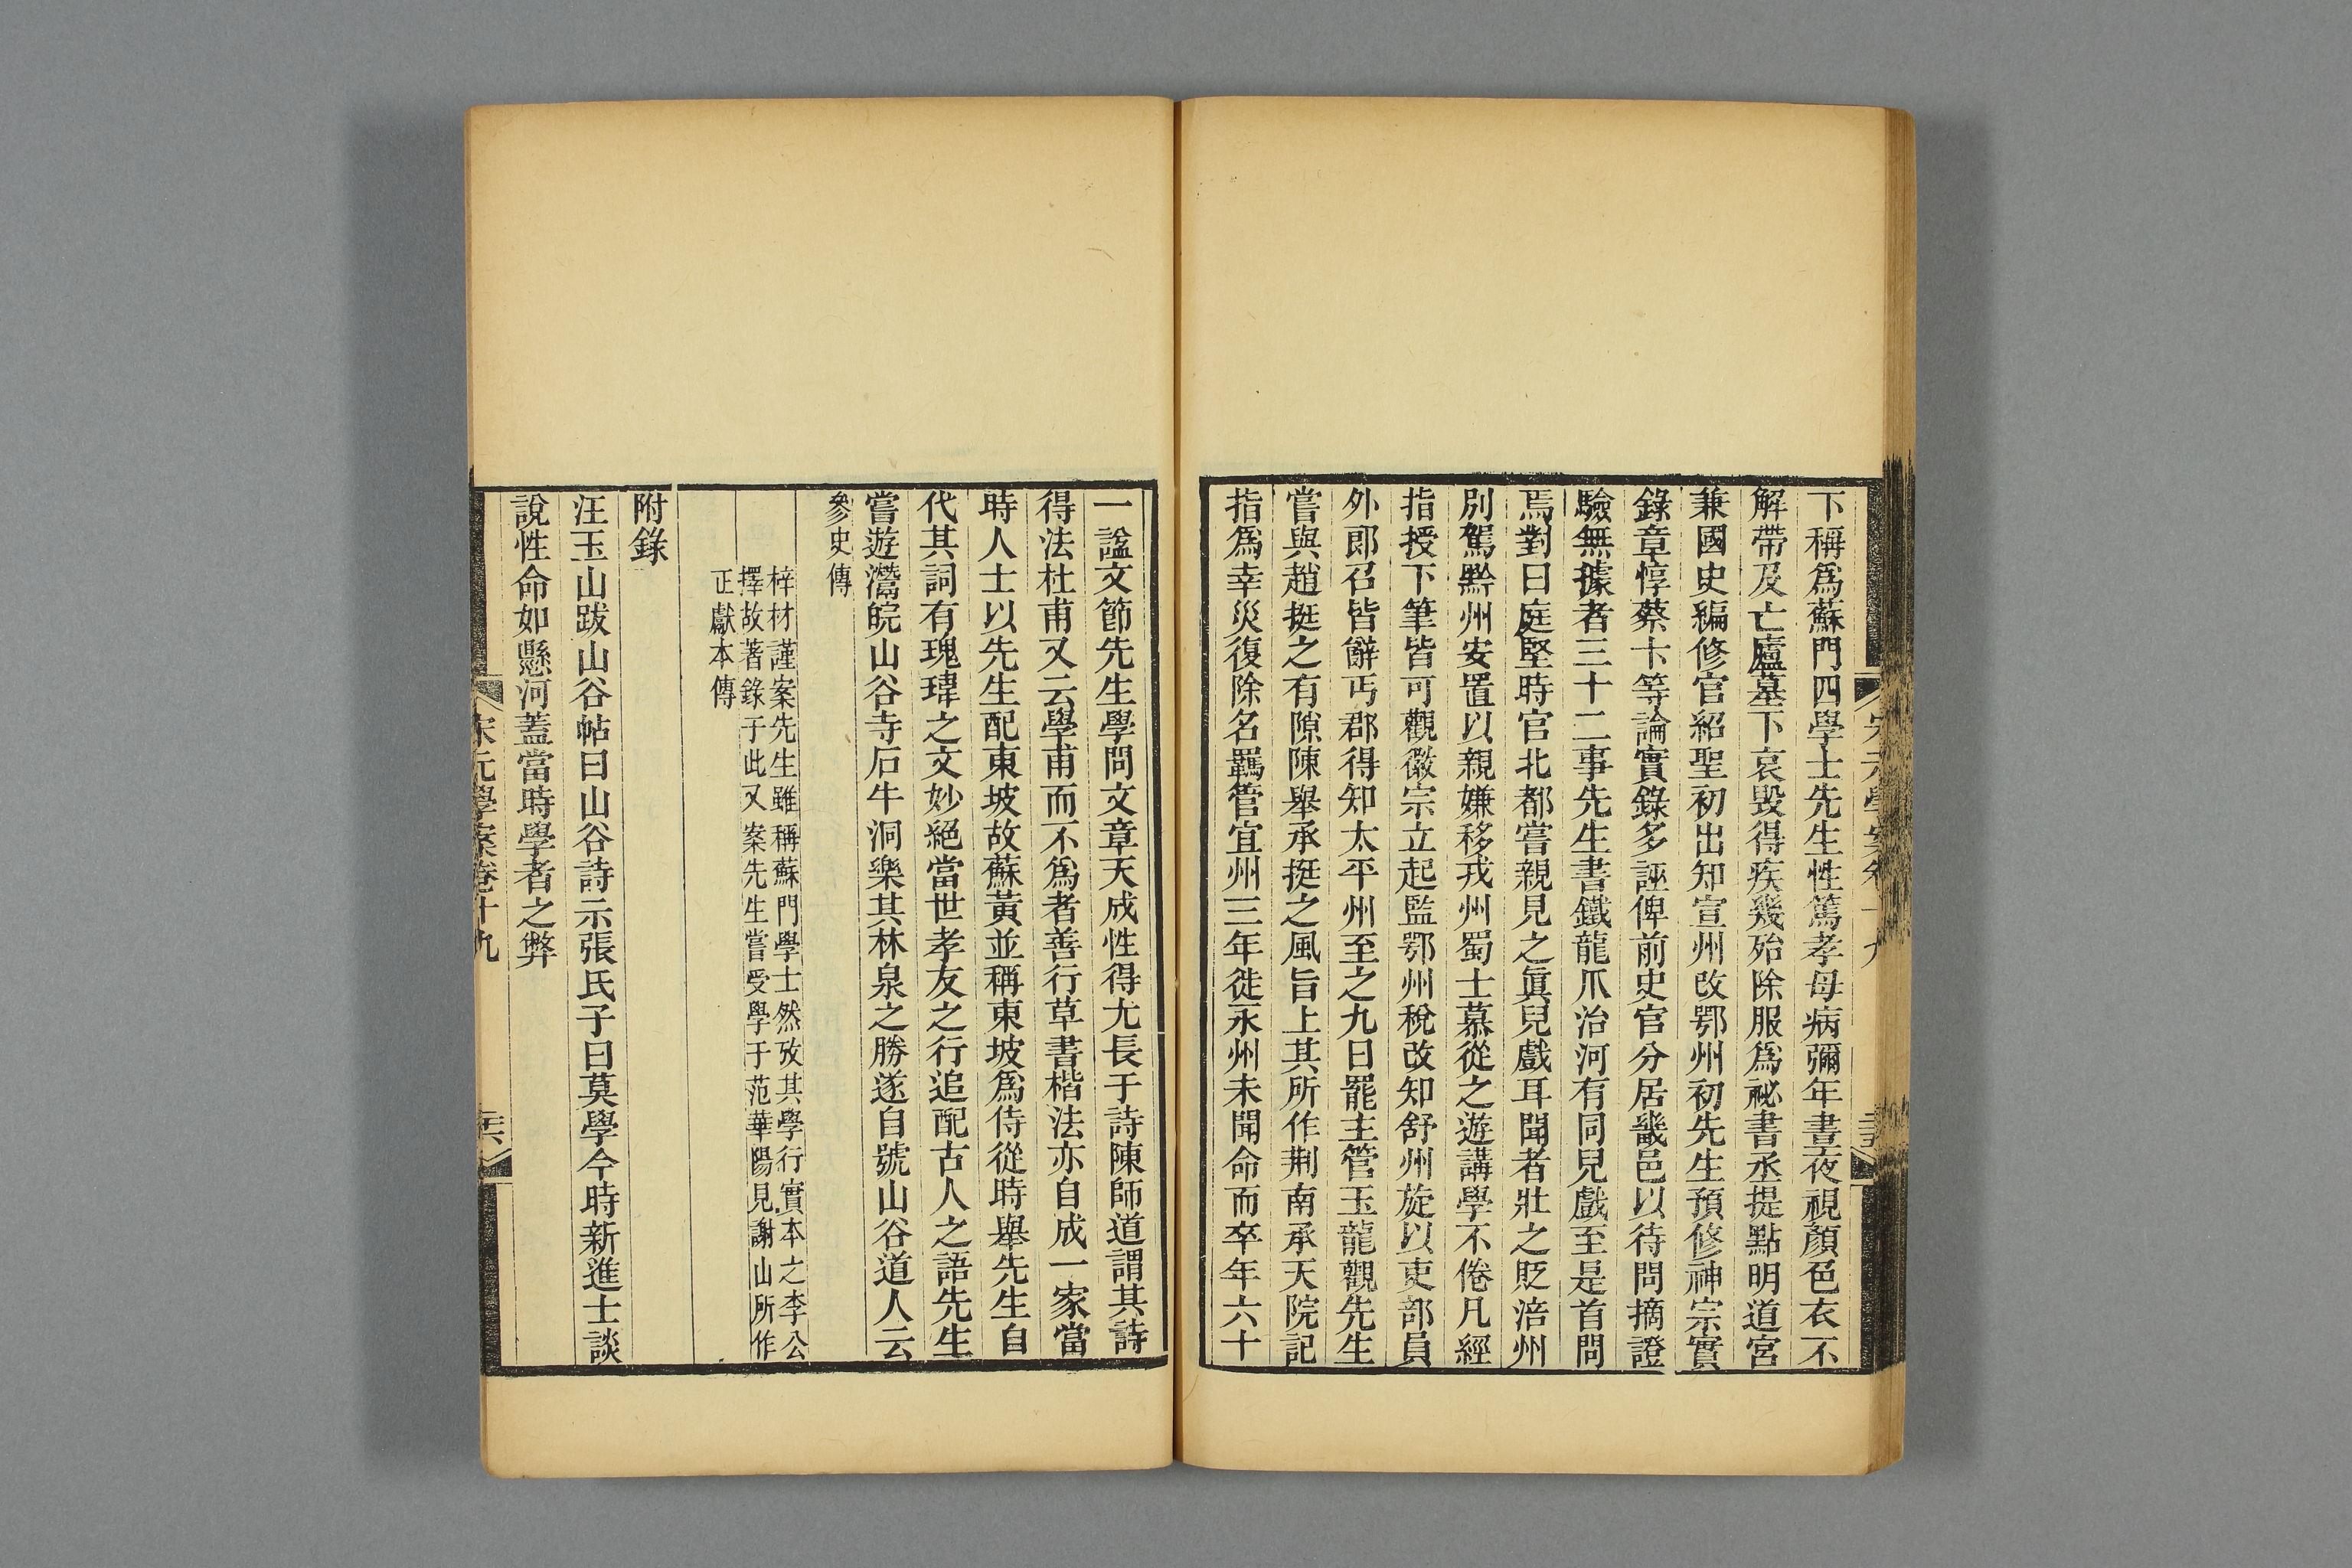 下稱爲蘇門四學士先生性篤孝母病彌年晝夜視顏色衣不
解帶及亡廬墓下哀毀得疾幾殆除服爲祕書丞提點明道宮
兼國史編修官紹聖初出知宣州改鄂州初先生預修神宗實
錄章惇蔡卞等論實錄多誣俾前史官分居畿邑以待問摘證
驗無據者三十二事先生書鐵龍爪治河有同兒戲至是首問
焉對曰庭堅時官北都嘗親見之眞兒戲耳聞者壯之貶涪州
別駕黔州安置以親嫌移戎州蜀士慕從之遊講學不倦凡經
指授下筆皆可觀徽宗立起監鄂州稅改知舒州旋以吏部員
外郞召皆辭丐郡得知太平州至之九日罷主管玉龍觀先生
嘗與趙挺之有隙陳舉承挺之風旨上其所作荆南承天院記
指爲幸災復除名羈管宜州三年徙永州未聞命而卒年六十
一諡文節先生學問文章天成性得尤長于詩陳師道謂其詩
得法杜甫又云學甫而不爲者善行草書楷法亦自成一家當
時人士以先生配東坡故蘇黃並稱東坡爲侍從時舉先生自
代其詞有瑰瑋之文妙絕當世孝友之行追配古人之語先生
嘗遊灊皖山谷寺石牛洞樂其林泉之勝遂自號山谷道人云
參史傳
梓材謹案先生雖稱蘇門學士然攷其學行實本之李公
擇故著錄于此又案先生嘗受學于范華陽見謝山所作
正獻本傳
附錄
汪玉山跋山谷帖曰山谷詩示張氏子曰莫學今時新進士談
說性命如懸河蓋當時學者之弊
宋元學案卷十九